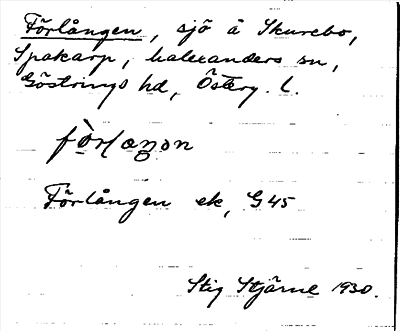 Förlången, sjö å Skurebo,
Spakarp, halexanders sn,
Göstrings hd, Österg. l.
Förlången ek, G45
Stig Stjärne 1930.